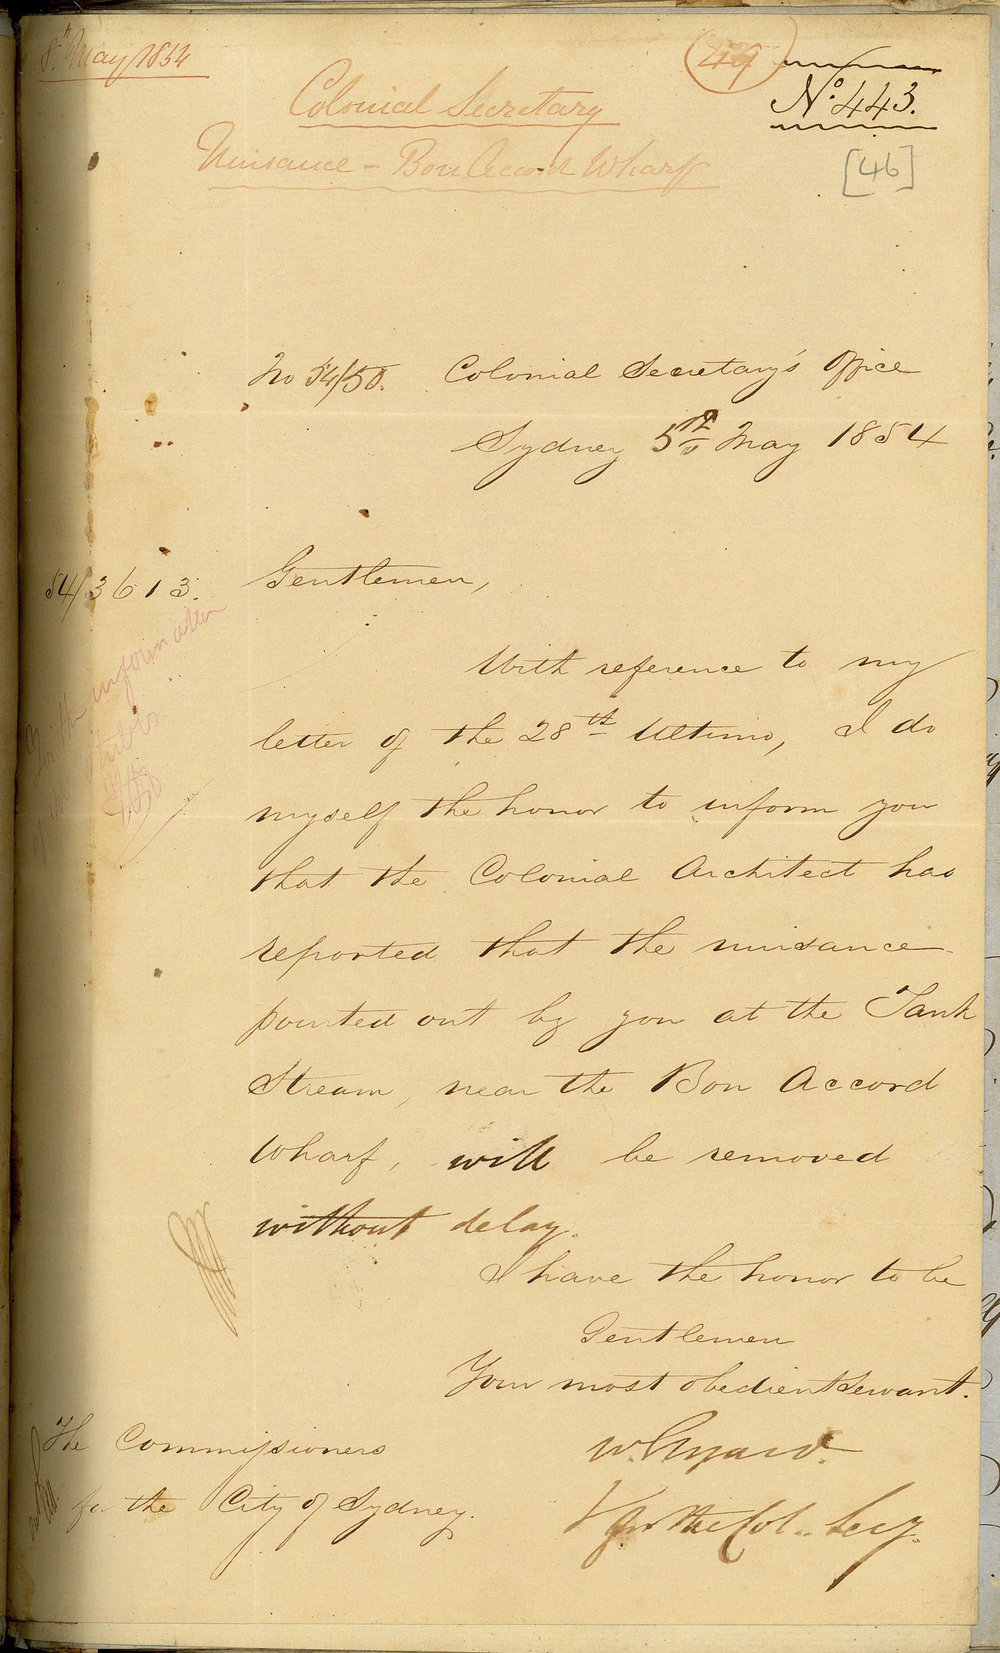 8th May 1854
49
No. 443.
Colonial Secretary
Nuisance - Bon Accord Wharf
[46]
No 54/50. Colonial Secretary's Office
Sydney 5th May 1854
54/3613.
Gentlemen,
For the information
of
With reference to my
letter of the 28th Ultimo, I do
myself the honor to inform you
that the Colonial Architect has
reported that the nuisance
pointed out by you at the Tank
Stream, near the Bon Accord
Wharf, will be removed
without delay.
I have the honor to be
Gentlemen
Your most obedient Servant.
The Commissioners
for the City of Sydney.
W. Elyard.
for the Col. Secy.